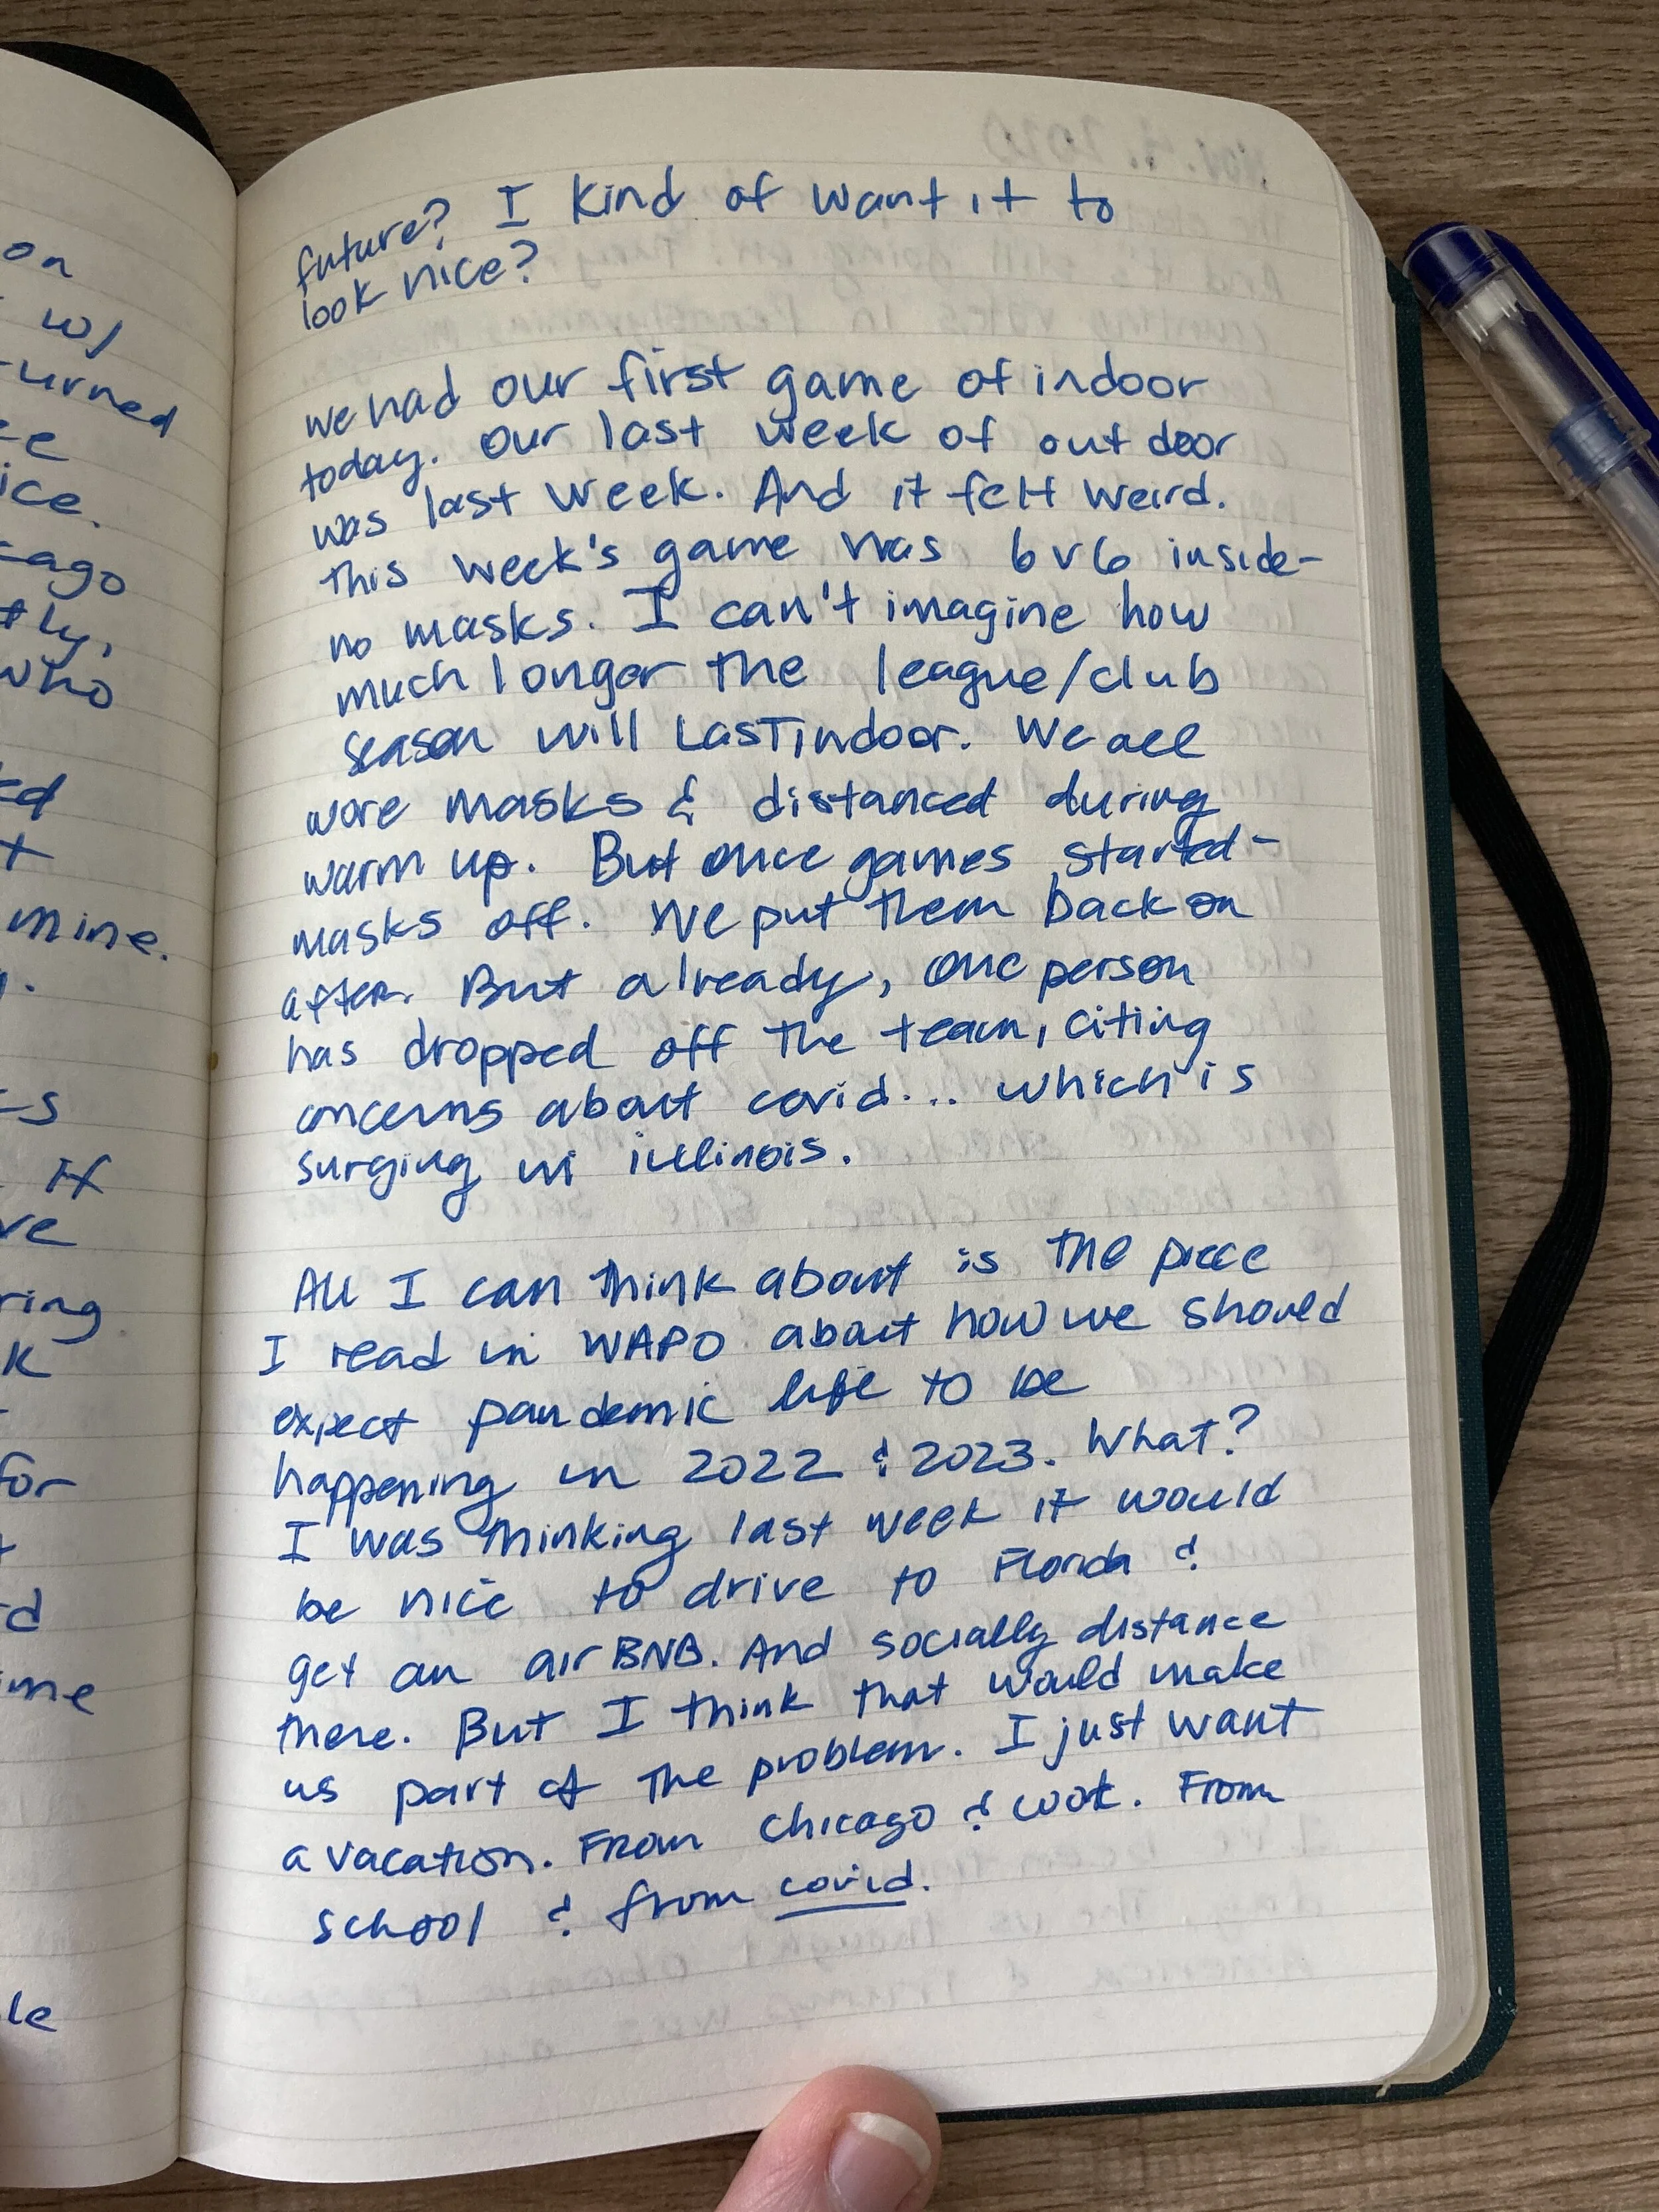 on
w/
urned
ice.
cago
tly,
who
ed
t
mine.
If
ve
ring
K
for
d
me
le
future? I kind of want it to
look nice?
we had our first game of indoor
today. Our last week of outdoor
was last week. And it felt weird.
This week's game was 6v6 inside-
no masks. I can't imagine how
much longer the league/club
season will last indoor. We all
wore masks & distanced during
warm up. But once games started-
masks off. We put them back on
after. But already, one person
has dropped off the team, citing
concerns about covid... which is
surging in illinois.
All I can think about is the piece
I read in WAPO about how we should
expect pandemic life to be
happening in 2022 & 2023. What?
I was thinking last week it would
be nice to drive to Florida &
get an airBNB. And socially distance
there. But I think that would make
us part of the problem. I just want
a vacation. From Chicago & work. From
school & from covid.